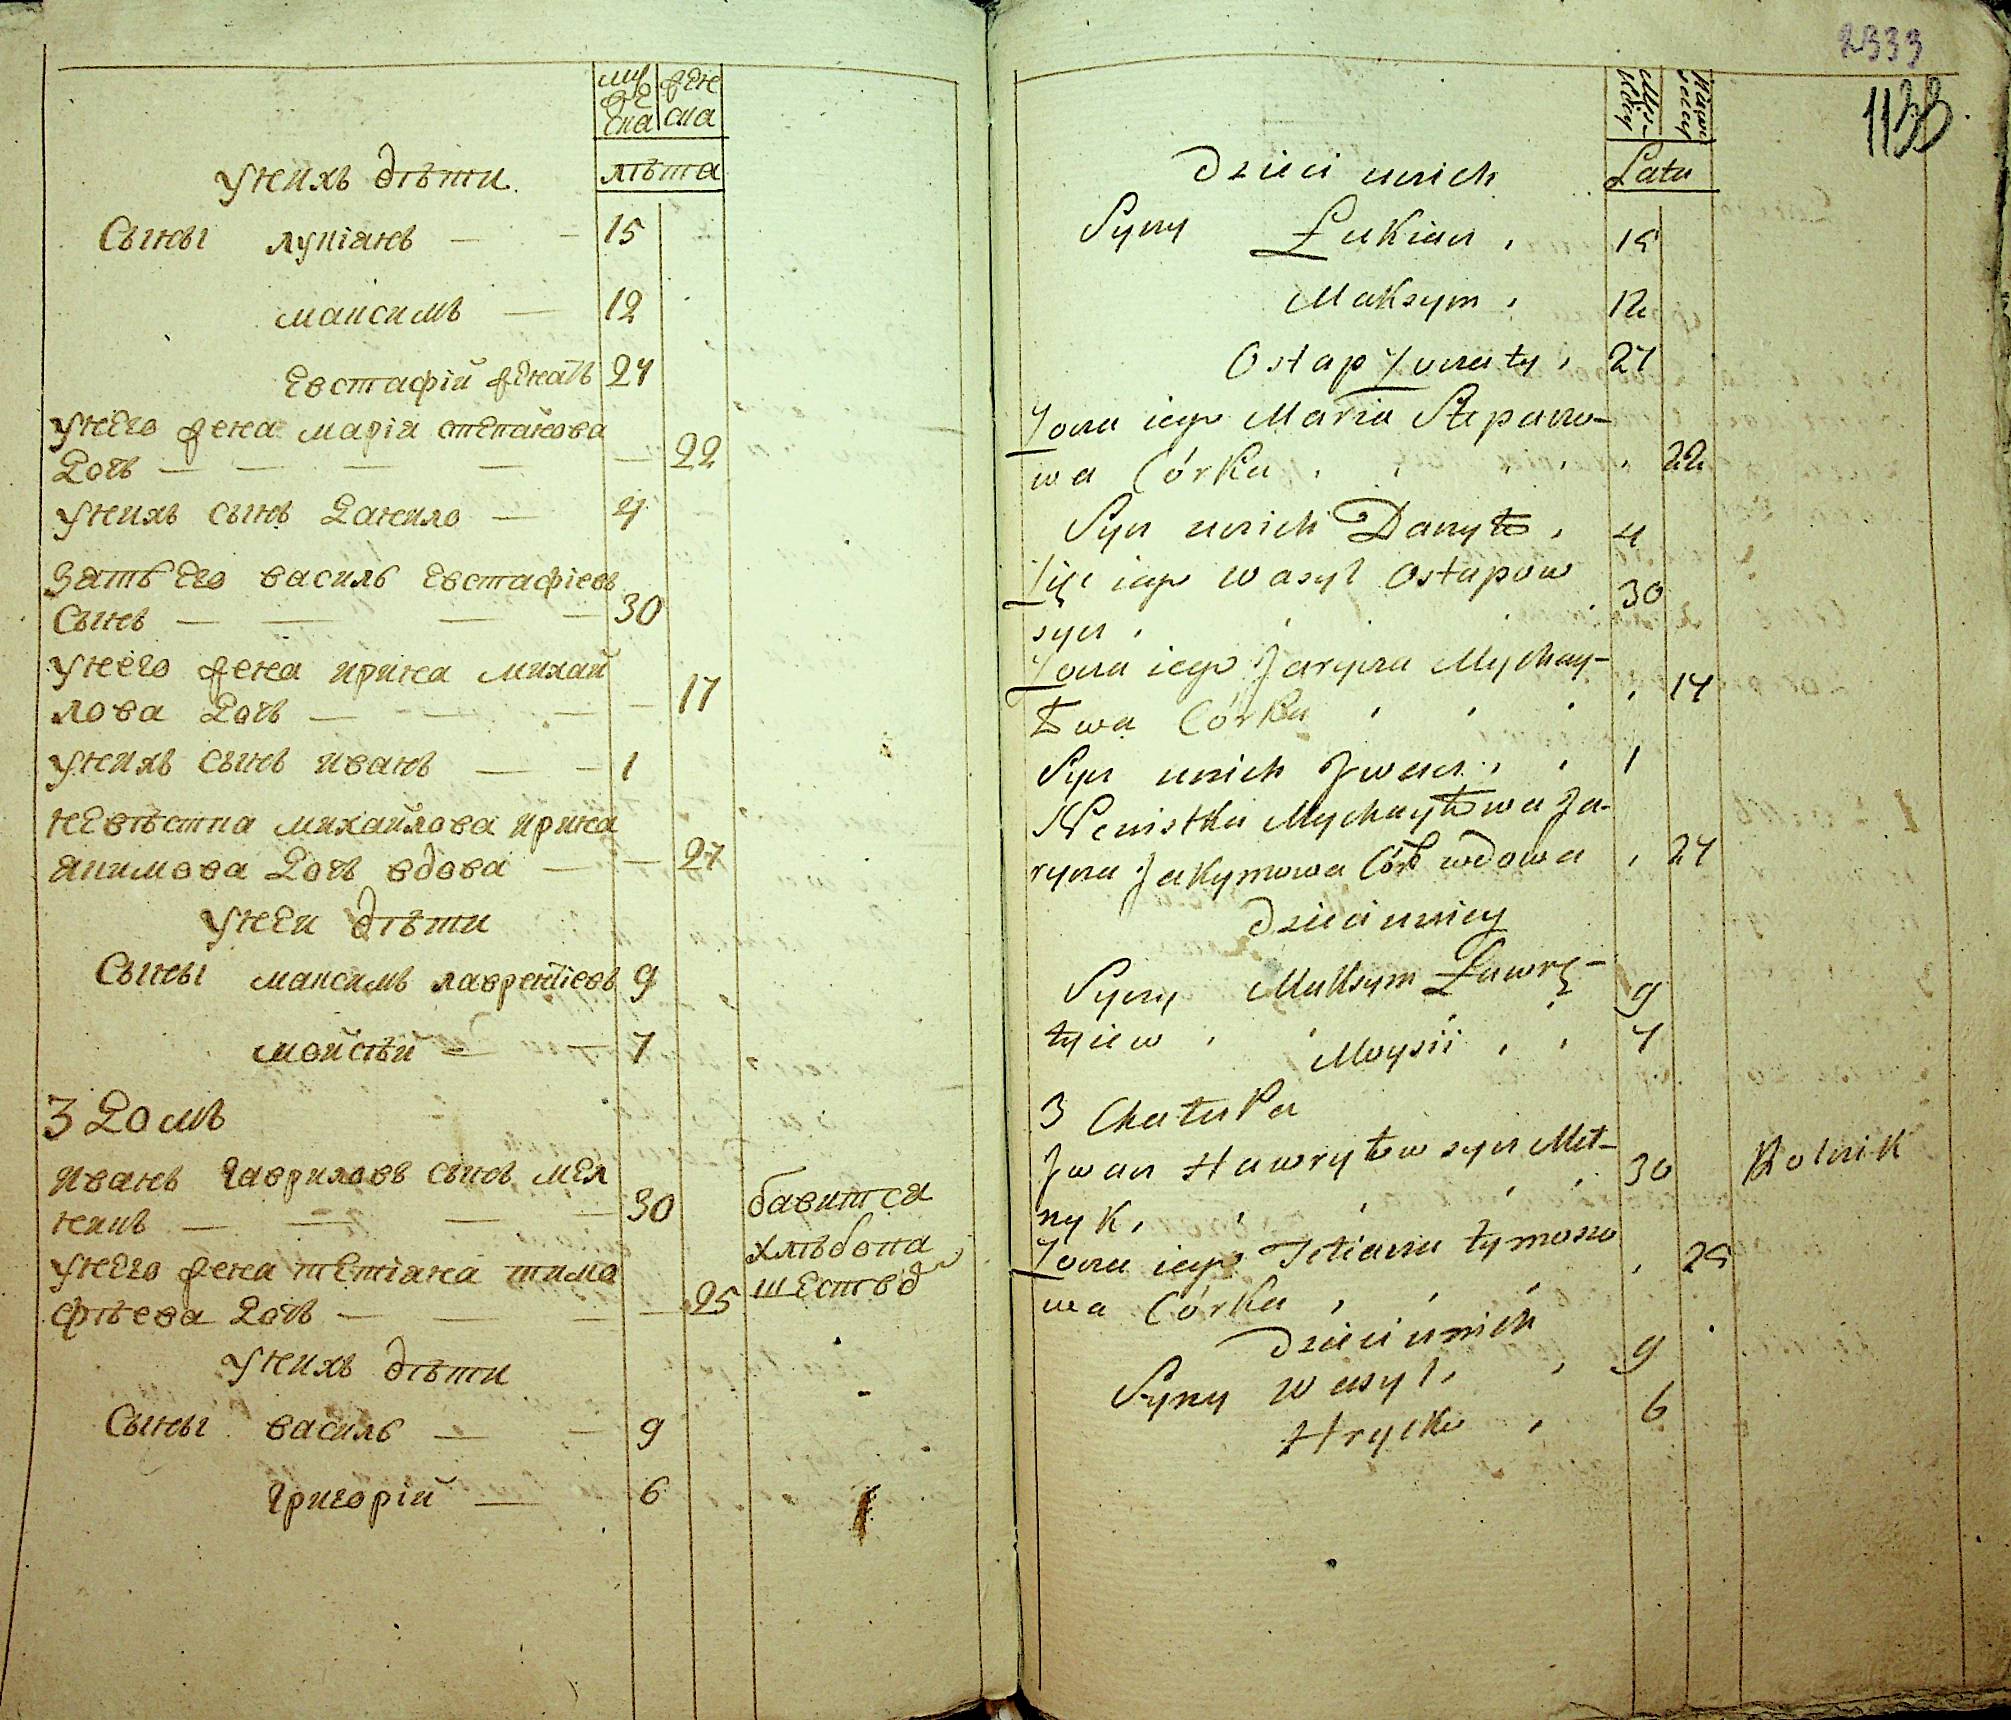 муже
ска
жен
ска
унихъ дѣти
лѣта
Сыны лукіанъ — — 15
максимъ — 12
Евстафій женатъ 24
унего жена марія степанова
Дочь — — — — — 22
унихъ сынъ Данило — 4
Зять Его василь Евстафіевъ
Сынъ — — — — 30
унего жена ирина михай
лова Дочь — — — — 17
унихъ сынъ иванъ — — 1
невѣстка михайлова ирина
якимова Дочь вдова — — 27
унеи дѣти
Сыны максимъ лаврентіевъ 9
мойсѣй — — 7
3 Домъ
иванъ Гавриловъ сынъ мел
никъ — — — — 30
бавится
хлѣбопа
шествомъ
унего жена тетіана тимо
фѣева Дочь — — — — 25
унихъ дѣти
Сыны василь — — 9
Григорій — 6
2333
1133
Męz-
kiey
Latu
Dzieci unich
Syny Łukian , 15
Maksym , 12
Ostap Żonaty , 24
Żona iego Maria Stepano-
wa Córka , , , , , 22
Syn unich Danyło , 4
Zięć iego Wasyl Ostapow
syn , , , 30
Żona iego Jaryna Mychay-
łowa Córka , , , , 17
Syn unich Jwan , , 1
Newistka Mychayłowa Ja-
ryna Jakymowa Córk wdowa , 27
Dzieci uniey
Syny Maksym Ławrę-
tyiew , , , 9
Moysii , , 7
3 Chałupa
Jwan Hawryłow syn Meł-
nyk , , , , 30 Rolnik
Żona iego Tetiana tymosze
wa Córka , , , , 25
Dzieci unich
Syny Wasyl , , 9
Hryćko , 6